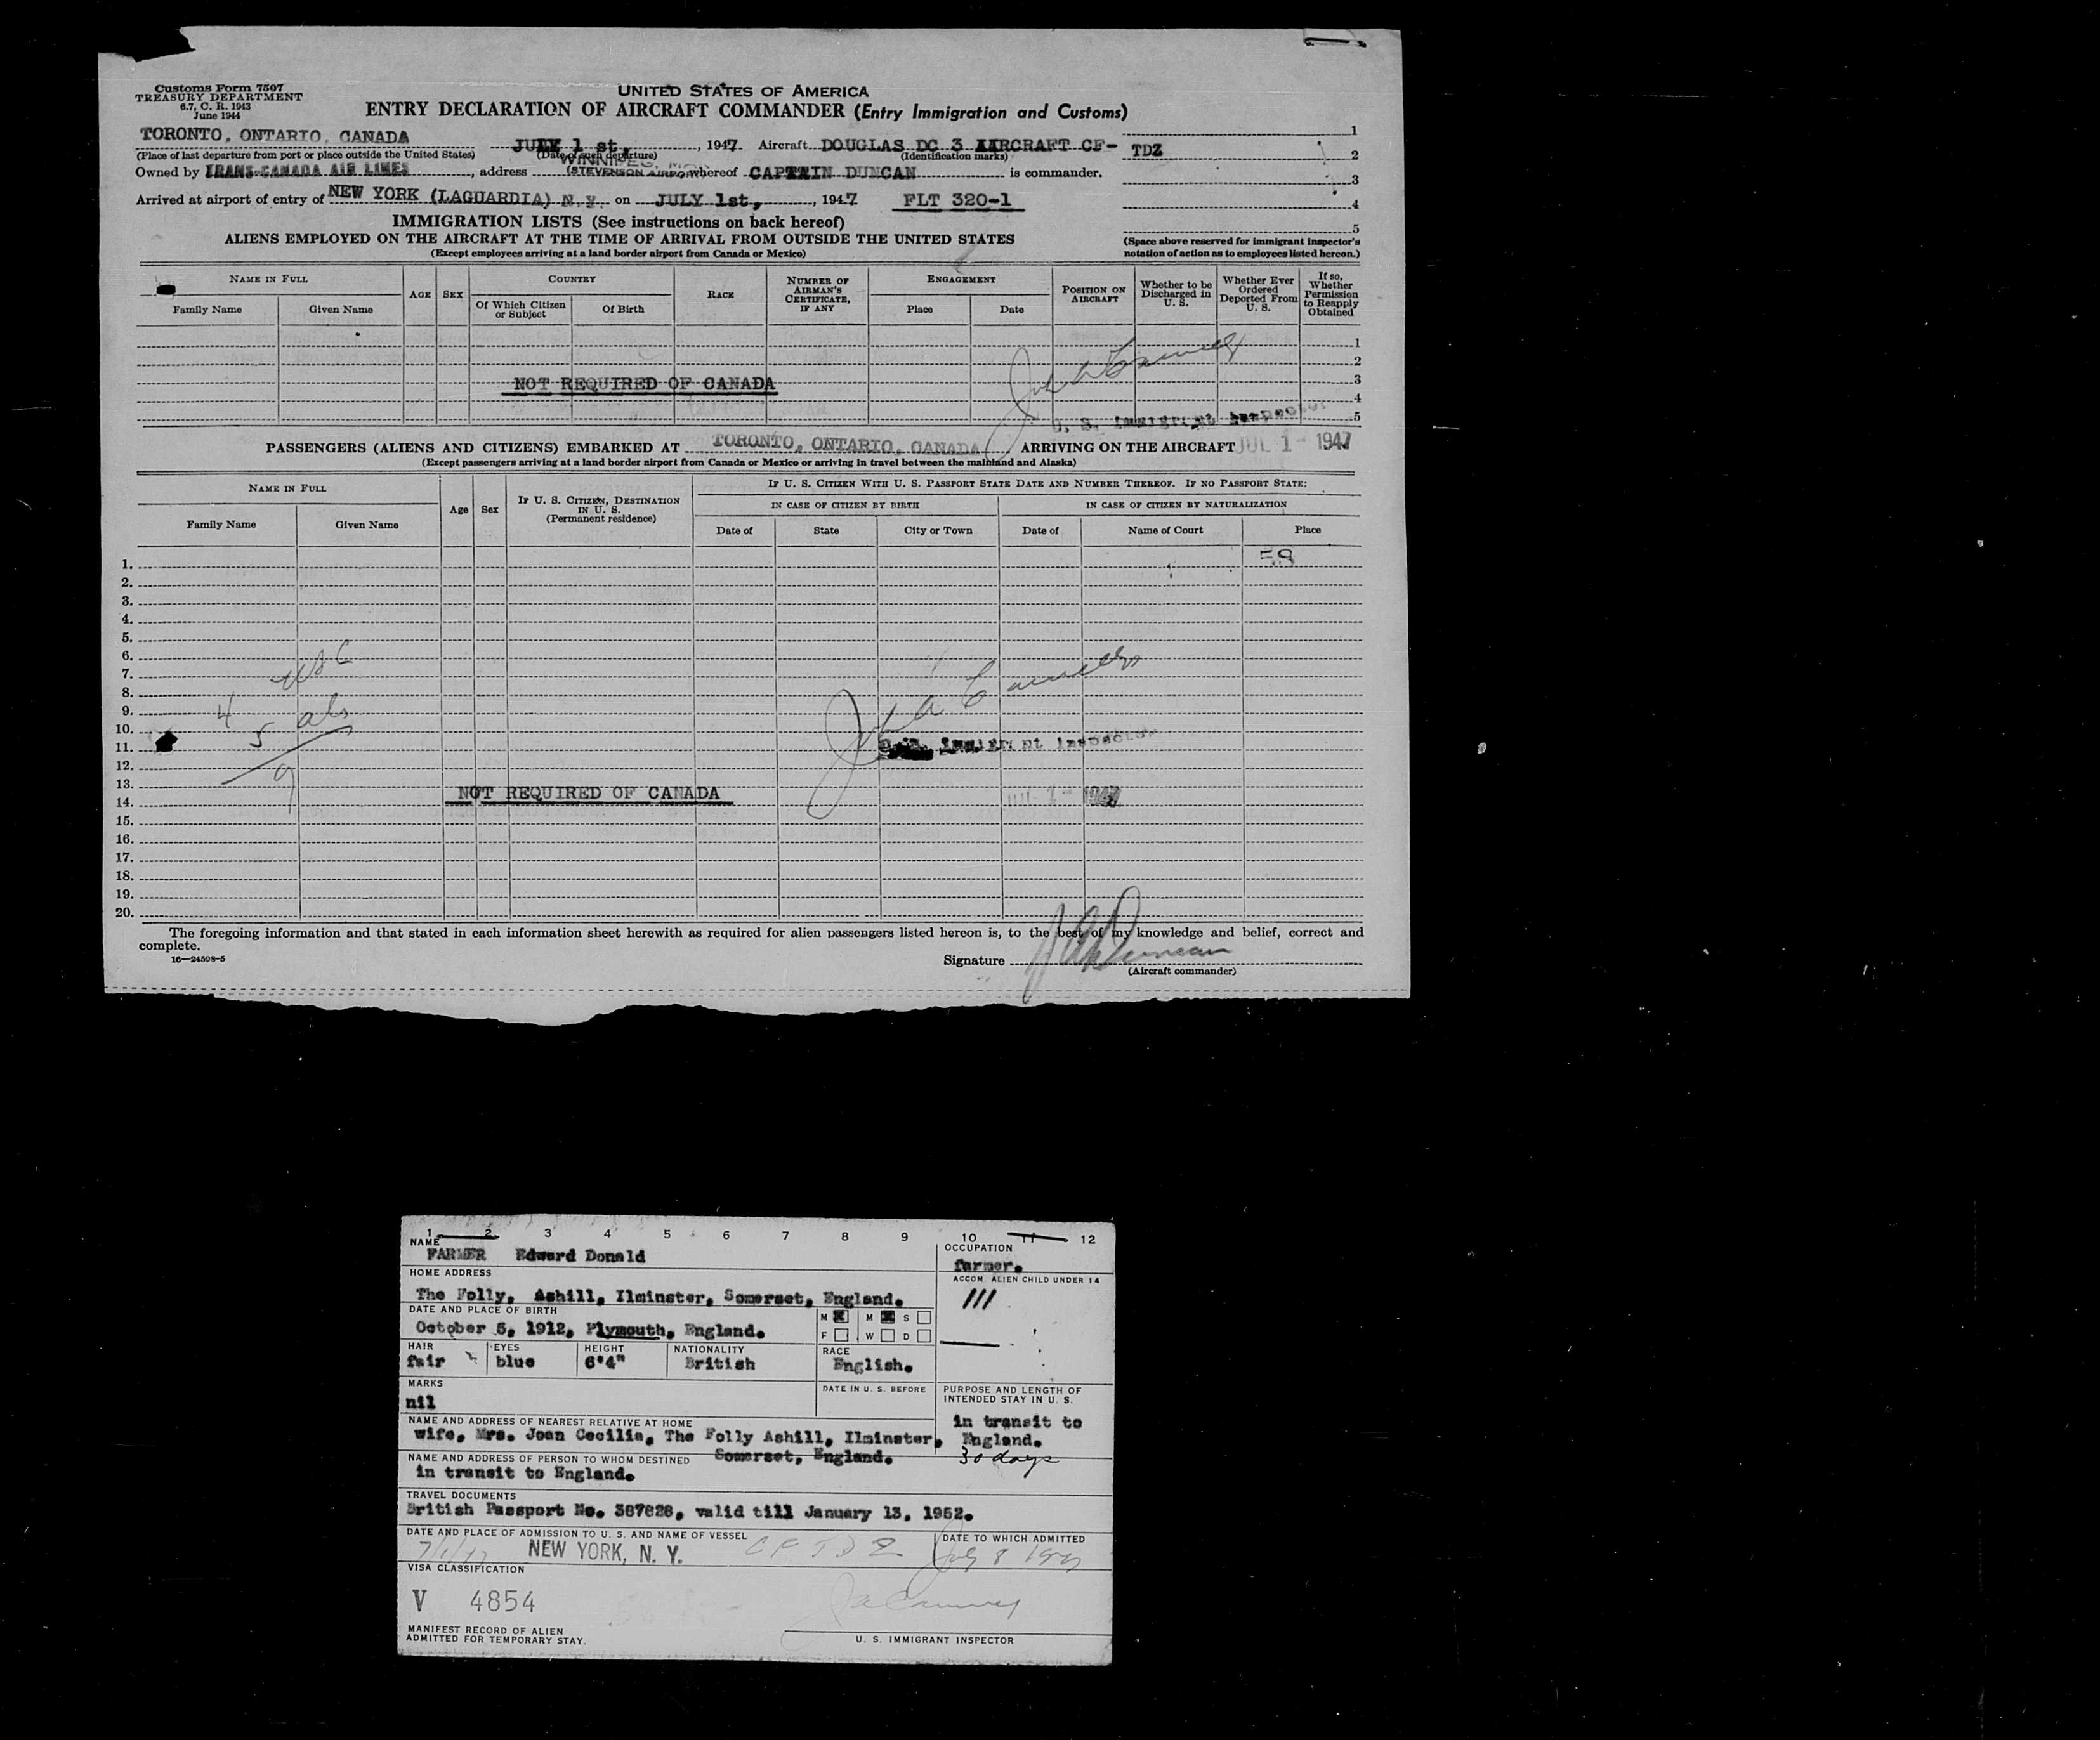 Customs Form 7507
TREASURY DEPARTMENT
6.7, C. R. 1943
June 1944
UNITED STATES OF AMERICA
ENTRY DECLARATION OF AIRCRAFT COMMANDER (Entry Immigration and Customs)
TORONTO, ONTARIO, CANADA JULY 1 st, 1947. Aircraft DOUGLAS DC 3 AIRCRAFT CF- TDZ
(Place of last departure from port or place outside the United States) (Date of such departure) (Identification marks)
Owned by TRANS-CANADA AIR LINES, address WINNIPEG, (STEVENSON AIRPO whereof CAPTAIN DUNCAN is commander.
Arrived at airport of entry of NEW YORK (LAGUARDIA) N. Y. on JULY 1st, , 1947 FLT 320-1
1
2
3
4
5
IMMIGRATION LISTS (See instructions on back hereof)
ALIENS EMPLOYED ON THE AIRCRAFT AT THE TIME OF ARRIVAL FROM OUTSIDE THE UNITED STATES
(Except employees arriving at a land border airport from Canada or Mexico)
(Space above reserved for immigrant inspector's
notation of action as to employees listed hereon.)
NAME IN FULL
Family Name Given Name
AGE SEX
COUNTRY
Of Which Citizen or Subject Of Birth
RACE
NUMBER OF AIRMAN'S CERTIFICATE, IF ANY
ENGAGEMENT
Place Date
POSITION ON AIRCRAFT
Whether to be Discharged in U. S.
Whether Ever Ordered Deported From U. S.
If so, Whether Permission to Reapply Obtained
1
2
3
4
5
NOT REQUIRED OF CANADA
U. S. Immigrant Inspector
PASSENGERS (ALIENS AND CITIZENS) EMBARKED AT TORONTO, ONTARIO, CANADA ARRIVING ON THE AIRCRAFT JUL 1 - 1947
(Except passengers arriving at a land border airport from Canada or Mexico or arriving in travel between the mainland and Alaska)
NAME IN FULL
Family Name Given Name
Age Sex
IF U. S. CITIZEN, DESTINATION IN U. S.
(Permanent residence)
IF U. S. CITIZEN WITH U. S. PASSPORT STATE DATE AND NUMBER THEREOF. IF NO PASSPORT STATE:
IN CASE OF CITIZEN BY BIRTH IN CASE OF CITIZEN BY NATURALIZATION
Date of State City or Town Date of Name of Court Place
1.
2.
3.
4.
5.
6.
7.
8.
9.
10.
11.
12.
13.
14.
15.
16.
17.
18.
19.
20.
4 USC
5 als
9
U.S. Immigrant Inspector
NOT REQUIRED OF CANADA
JUL 1 - 1947
The foregoing information and that stated in each information sheet herewith as required for alien passengers listed hereon is, to the best of my knowledge and belief, correct and
complete.
16—24598-5
Signature Duncan
(Aircraft commander)
1 2 3 4 5 6 7 8 9 10 11 12
NAME
FARMER Edward Donald
OCCUPATION
farmer.
HOME ADDRESS
The Folly, Ashill, Ilminster, Somerset, England.
ACCOM. ALIEN CHILD UNDER 14
DATE AND PLACE OF BIRTH
October 5, 1912, Plymouth, England.
M M S
F W D
HAIR EYES HEIGHT NATIONALITY RACE
fair blue 6'4" British English.
MARKS
nil
DATE IN U. S. BEFORE
PURPOSE AND LENGTH OF
INTENDED STAY IN U. S.
in transit to
England.
30 days
NAME AND ADDRESS OF NEAREST RELATIVE AT HOME
wife, Mrs. Joan Cecilia, The Folly Ashill, Ilminster,
Somerset, England.
NAME AND ADDRESS OF PERSON TO WHOM DESTINED
in transit to England.
TRAVEL DOCUMENTS
British Passport No. 387828, valid till January 13, 1952.
DATE AND PLACE OF ADMISSION TO U. S. AND NAME OF VESSEL
7/1/47 NEW YORK, N. Y. CF TDZ
DATE TO WHICH ADMITTED
July 8 1947
VISA CLASSIFICATION
V 4854
MANIFEST RECORD OF ALIEN
ADMITTED FOR TEMPORARY STAY.
U. S. IMMIGRANT INSPECTOR